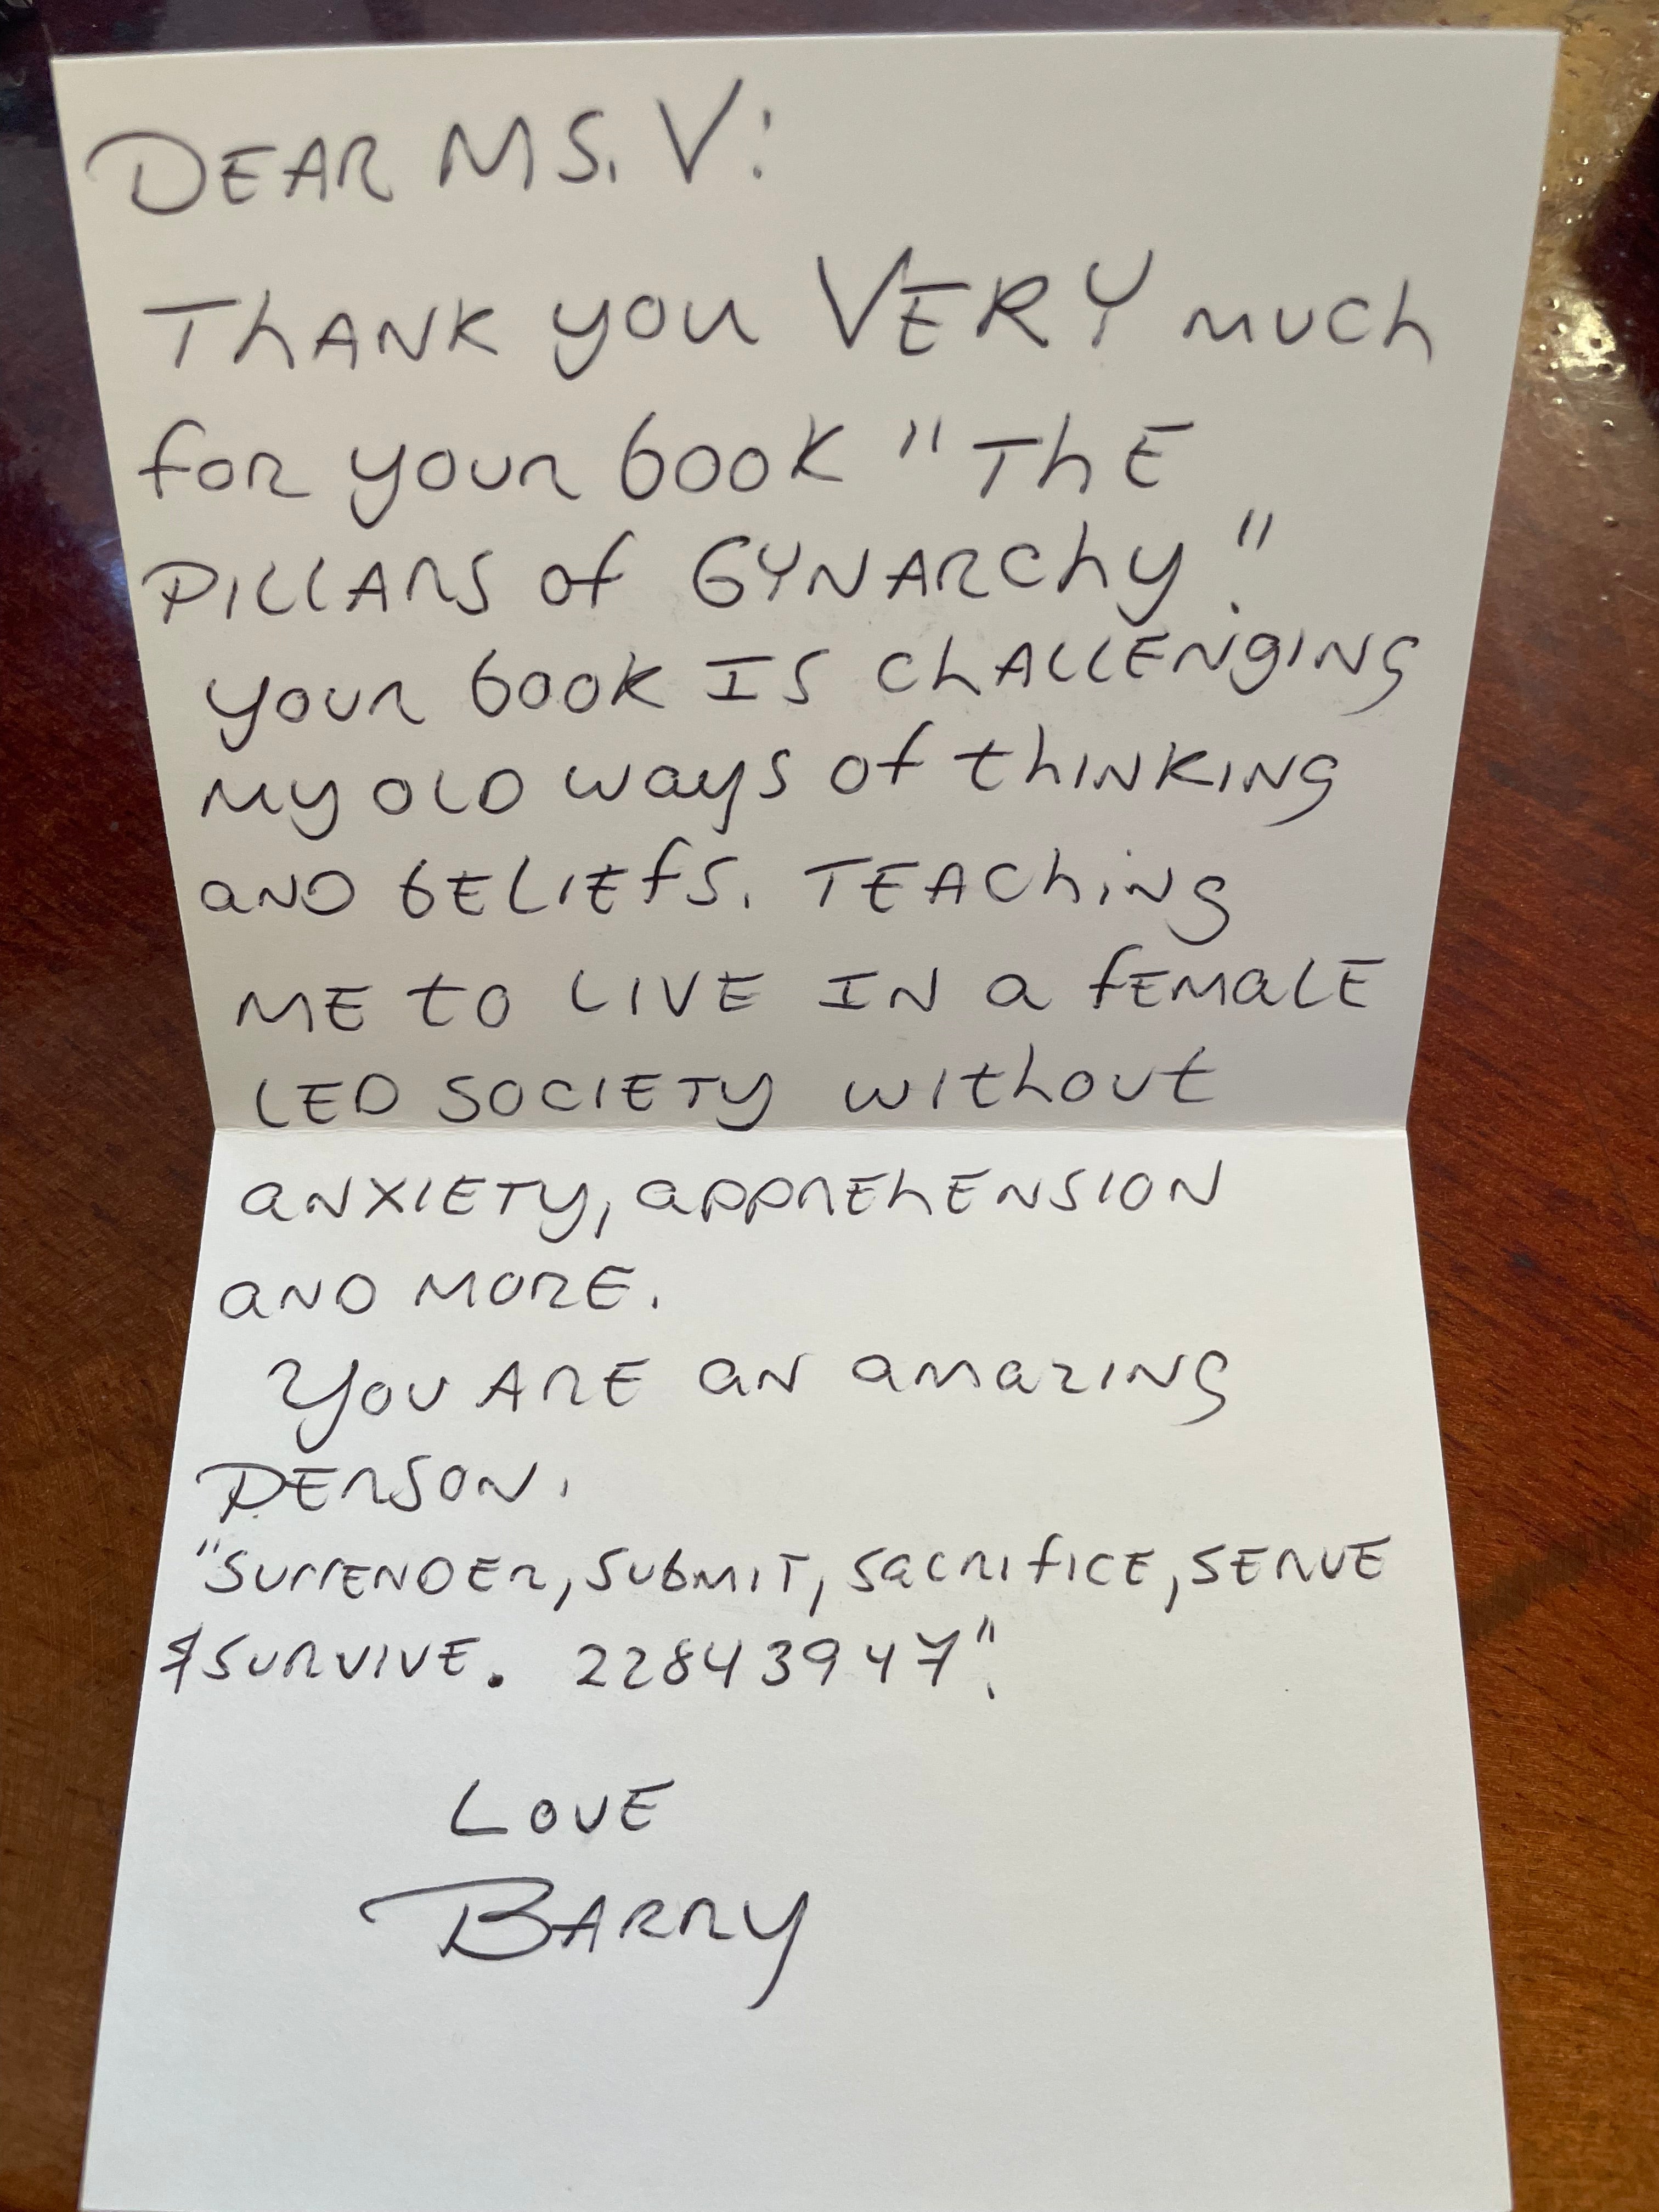 DEAR MS. V:
THANK YOU VERY much
for your book "The
PILLARS of GYNARCHY."
your book IS CHALLENGING
my OLD ways of thINKING
and BELIEFS. TEAChING
ME to LIVE IN a FEMALE
LED SOCIETY without
ANXIETY, APPREHENSION
AND MORE.
You ARE an amazing
PERSON.
"SURRENDER, SUBMIT, SACRIFICE, SERVE
& SURVIVE. 22843947".
LOVE
BARRY